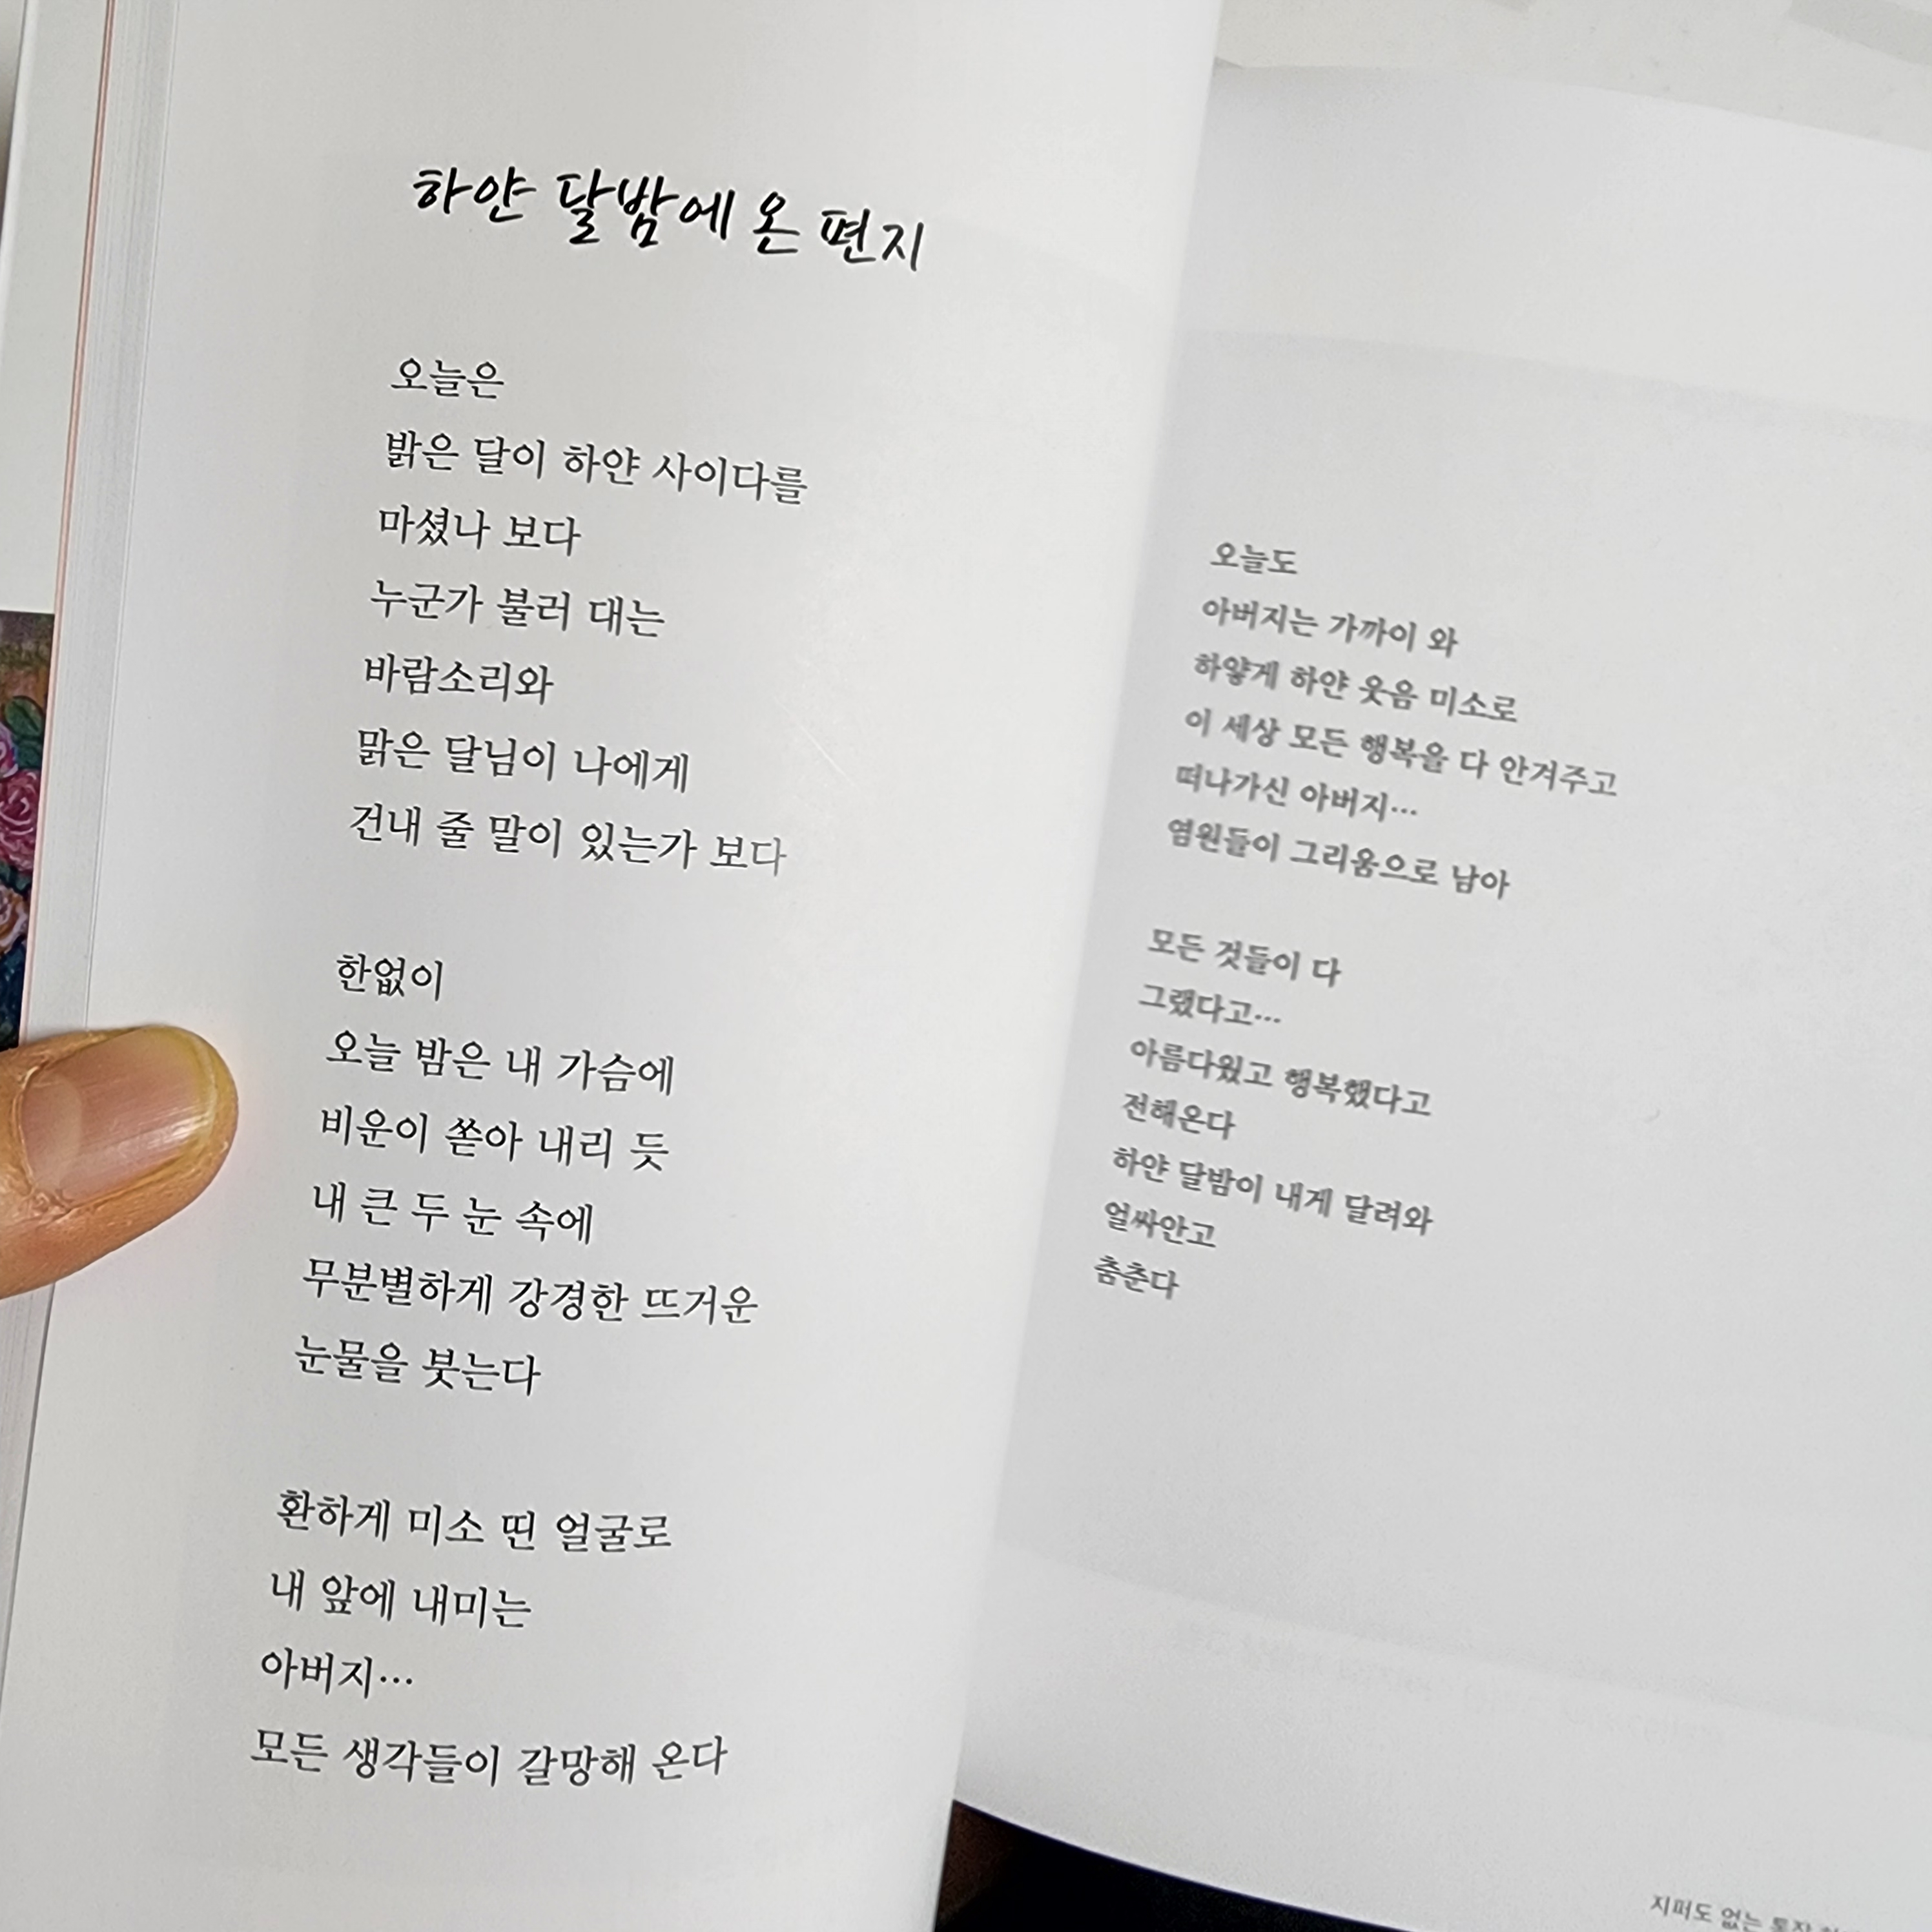 하얀 달밤에 온 편지
오늘은
밝은 달이 하얀 사이다를
마셨나 보다
누군가 불러 대는
바람소리와
맑은 달님이 나에게
건내 줄 말이 있는가 보다
한없이
오늘 밤은 내 가슴에
비운이 쏟아 내리 듯
내 큰 두 눈 속에
무분별하게 강경한 뜨거운
눈물을 붓는다
환하게 미소 띤 얼굴로
내 앞에 내미는
아버지…
모든 생각들이 갈망해 온다
오늘도
아버지는 가까이 와
하얗게 하얀 웃음 미소로
이 세상 모든 행복을 다 안겨주고
떠나가신 아버지…
염원들이 그리움으로 남아
모든 것들이 다
그랬다고…
아름다웠고 행복했다고
전해온다
하얀 달밤이 내게 달려와
얼싸안고
춤춘다
지퍼도 없는